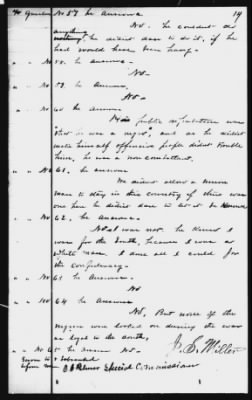 To Question No 57 he Answers
19
No. he couldent do
anything
nothing, he didnt dare to do it, if he
had would have been hung.
" " No 58. he answers
No
" " No 59. he answers
No
" " No 60 he Answers
His public reputation was
that he was a negro, and as he didnt
make himself offensive people didnt trouble
him, he was a non combattent.
" " No 61. he answers
We didnt allow a union
man to stay in this country if there was
one here he didnt dare to let it be known
" " No 62. he Answers
No I was not. he knew I
was for the South, because I was a
White man, I done all I could for
the confederacy.
" " No 63 he Answers
No
" " No 64 he Answers
No, But none of the
negroes were looked on during the war
as loyal to the South,
" " No 65 he Answers No.
J. C. Miller
Sworn to & subscribed
before me
Special Commissioner